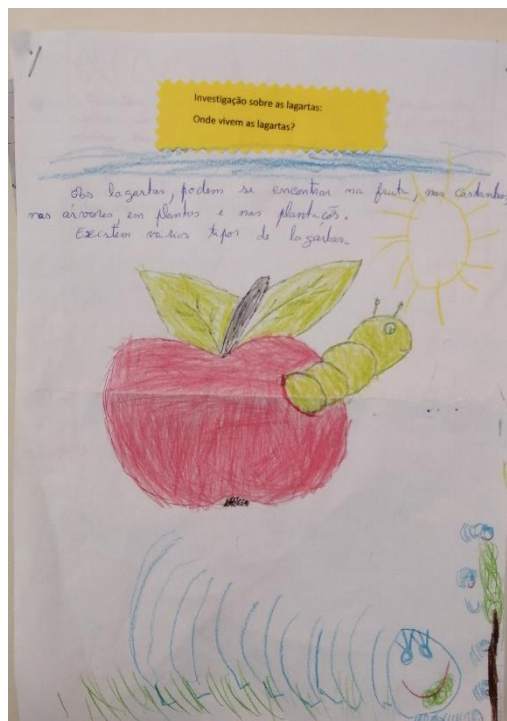 Investigação sobre as lagartas:
Onde vivem as lagartas?
As lagartas, podem se encontrar na fruta, nas castanhas
nas árvores, em plantas e nas plantações.
Existem vários tipos de lagartas.